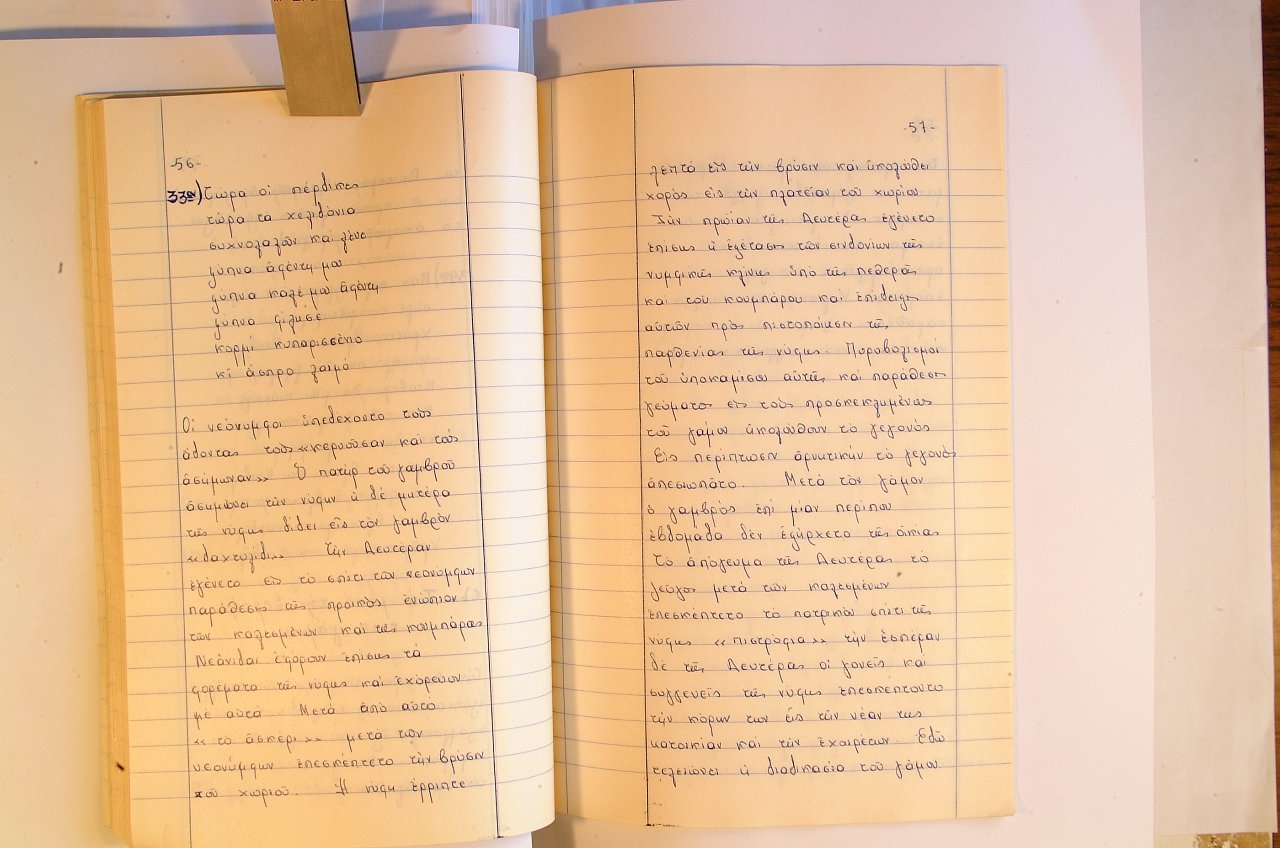 -56-
33ον) Τώρα οι πέρδικες
τώρα τα χελιδόνια
συχνολαλούν και λένε
ξύπνα ἀφέντη μου
ξύπνα καλέ μου ἀφέντη
ξύπνα φίλησε
κορμί κυπαρισσένιο
κι ἄσπρο λαιμό
Οἱ νεόνυμφοι ὑπεδέχοντο τοὺς
ἄδοντας τοὺς «κερνοῦσαν και τοὺς
ἀσήμωναν» Ὁ πατὴρ τοῦ γαμβροῦ
ἀσημώνει τὴν νύφην ἡ δέ μητέρα
τῆς νύφης δίδει εἰς τὸν γαμβρὸν
«δαχτυλίδι» Τὴν Δευτέραν
ἐγένετο εἰς τὸ σπίτι τῶν νεονύμφων
παράθεσις τῆς προικὸς ἐνώπιον
τῶν καλεσμένων και τῆς κουμπάρας
Νεάνιδαι ἐφόρουν ἐπίσης τὰ
φορέματα τῆς νύφης και ἐχόρευον
μὲ αὐτά Μετὰ ἀπὸ αὐτὸ
«τὸ ἀσκέρι» μετα τῶν
νεονύμφων ἐπεσκέπτετο τὴν βρύσιν
τοῦ χωριοῦ. Ἡ νύφη ἔρριπτε
-57-
λεπτά εἰς τὴν βρύσιν και ἀκολουθεῖ
χορὸς εἰς τὴν πλατεῖαν τοῦ χωρίου
Τὴν πρωΐαν τῆς Δευτέρας ἐγένετο
ἐπίσης ἡ ἐξέτασις τῶν σινδονίων τῆς
νυμφικῆς κλίνης ὑπο τῆς πεθερᾶς
και τοῦ κουμπάρου και ἐπίδειξις
αὐτῶν πρὸς πιστοποίησιν τῆς
παρθενίας τῆς νύφης. Πυροβολισμοί
τοῦ ὑποκαμίσου αὐτῆς και παράθεσις
γεύματος εἰς τοὺς προσκεκλημένους
τοῦ γάμου ἀκολουθοῦν τὸ γεγονὸς
Εἰς περίπτωσιν ἀρνητικήν τὸ γεγονὸς
ἀπεσιωπᾶτο. Μετά τὸν γάμον
ὁ γαμβρὸς ἐπί μίαν περίπου
ἑβδομάδα δὲν ἐξήρχετο τῆς οἰκίας
Τὸ ἀπόγευμα τῆς Δευτέρας τὸ
ζεῦγος μετά τῶν καλεσμένων
ἐπεσκέπτετο τὸ πατρικὸν σπίτι τῆς
νύφης «πιστρόφια» τὴν ἑσπέραν
δὲ τῆς Δευτέρας οἱ γονεῖς και
συγγενεῖς τῆς νύφης ἐπεσκέπτοντο
τὴν κόρην των εἰς τὴν νέαν της
κατοικίαν και τὴν ἐχαιρέτων. Ἐδῶ
τελειώνει ἡ διαδικασία τοῦ γάμου